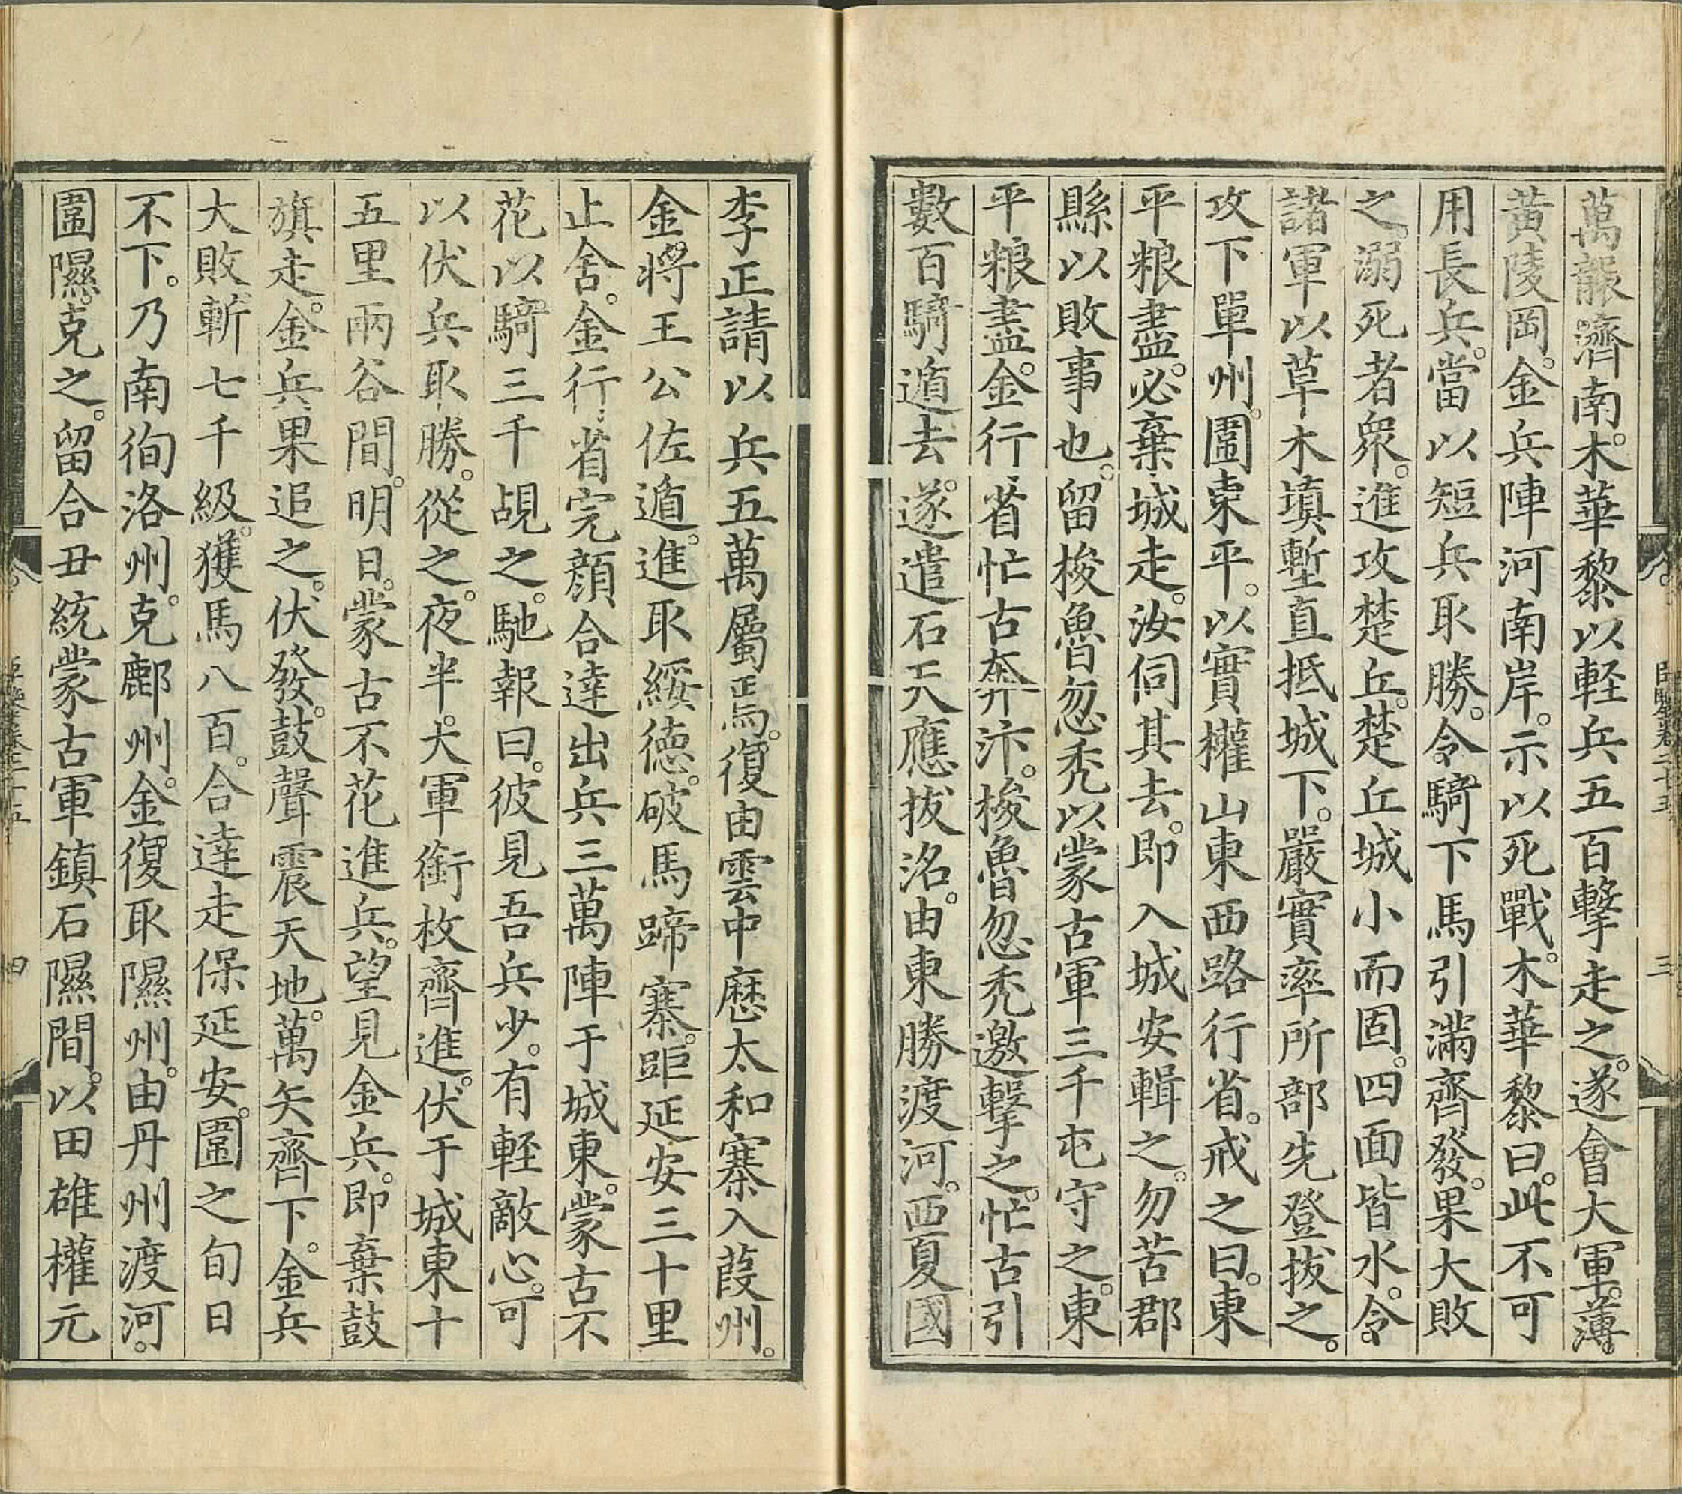 萬襲濟南。木華黎以輕兵五百擊走之。遂會大軍。薄
黃陵岡。金兵陣河南岸。示以死戰。木華黎曰。此不可
用長兵。當以短兵取勝。令騎下馬引滿齊發。果大敗
之。溺死者衆。進攻楚丘。楚丘城小而固。四面皆水。令
諸軍以草木填塹直抵城下。嚴實率所部先登拔之。
攻下單州。圍東平。以實權山東西路行省。戒之曰。東
平粮盡。必棄城走。汝伺其去。即入城安輯之。勿苦郡
縣以敗事也。留梭魯忽禿以蒙古軍三千屯守之。東
平粮盡。金行省忙古奔汴。梭魯忽禿邀擊之。忙古引
數百騎遁去。遂遣石天應拔洺。由東勝渡河。西夏國
李正請以兵五萬屬焉。復由雲中歷太和寨入葭州。
金將王公佐遁。進取綏德。破馬蹄寨。距延安三十里
止舍。金行省完顏合達出兵三萬陣于城東。蒙古不
花以騎三千覘之。馳報曰。彼見吾兵少。有輕敵心。可
以伏兵取勝。從之。夜半。大軍銜枚齊進。伏于城東十
五里兩谷間。明日。蒙古不花進兵。望見金兵。即棄鼓
旗走。金兵果追之。伏發。鼓聲震天地。萬矢齊下。金兵
大敗。斬七千級。獲馬八百。合達走保延安。圍之旬日
不下。乃南徇洛州。克鄜州。金復取隰州。由丹州渡河。
圍隰。克之。留合丑統蒙古軍鎮石隰間。以田雄權元
三
四